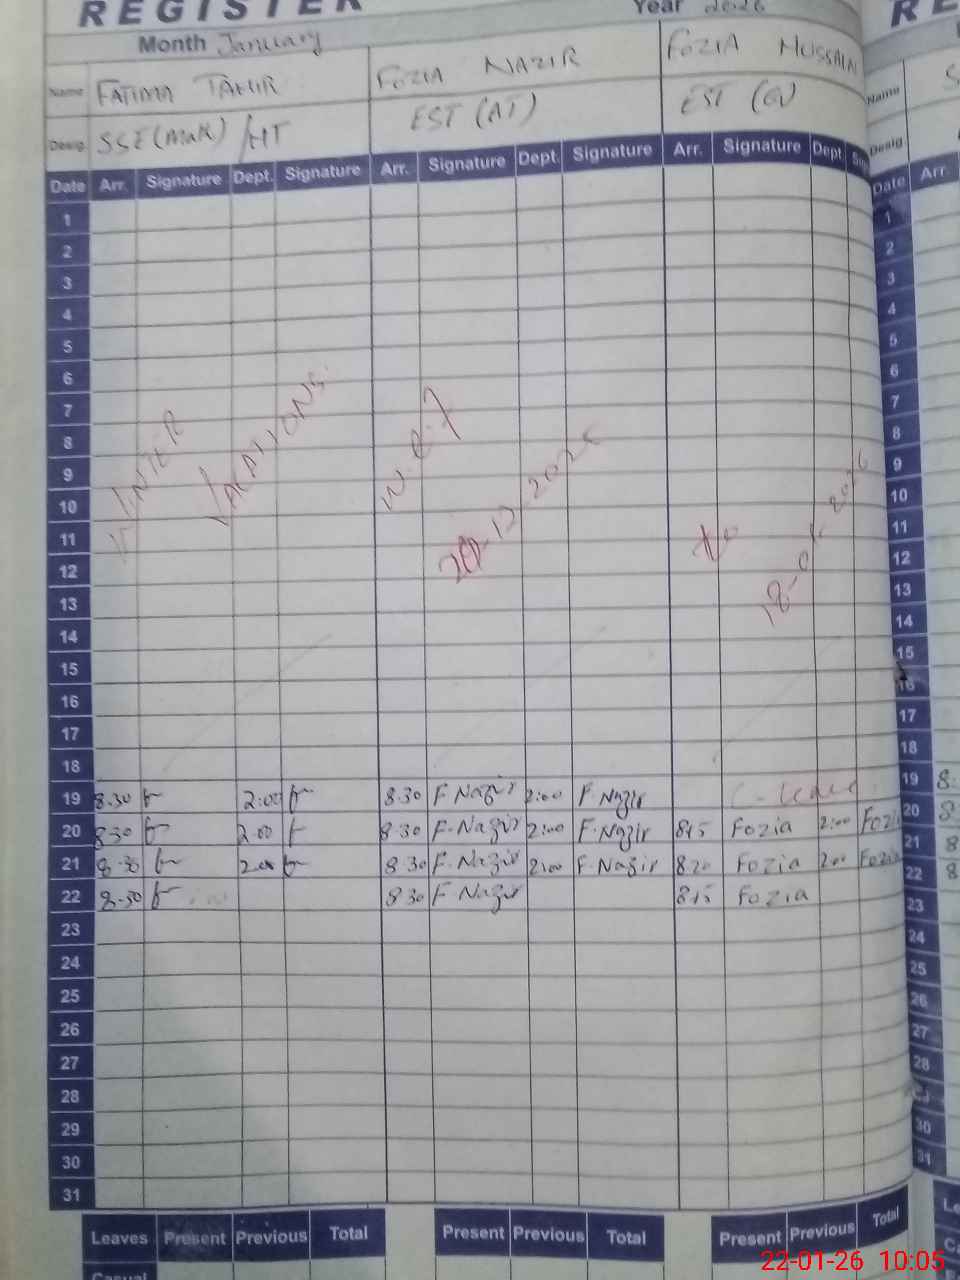 REGISTER
Year 2026
Month January
Name FATIMA TAHIR FOZIA NAZIR FOZIA HUSSAIN Name
Desig. SSE(Math)/HT EST (AT) EST (CV) Desig
Date Arr. Signature Dept. Signature Arr. Signature Dept. Signature Arr. Signature Dept. Date Arr.
1 1
2 2
3 3
4 4
5 5
6 6
7 7
8 8
9 9
10 10
11 11
12 12
13 13
14 14
15 15
16 16
17 17
18 18
WINTER VACATIONS W.e.f to 18-01-2026
19 8.30 2:00 8.30 F.Nazir 2:00 F.Nazir C-Leave 19 8
20 8.30 2.00 8.30 F.Nazir 2:00 F.Nazir 8:15 Fozia 2:00 Fozia 20 8
21 8.30 2.00 8.30 F.Nazir 2:00 F.Nazir 8:20 Fozia 2:00 Fozia 21 8
22 8.30 8.30 F.Nazir 8:15 Fozia 22 8
23 23
24 24
25 25
26 26
27 27
28 28
29
30 30
31 31
Leaves Present Previous Total Present Previous Total Present Previous Total
Casual
22-01-26 10:05